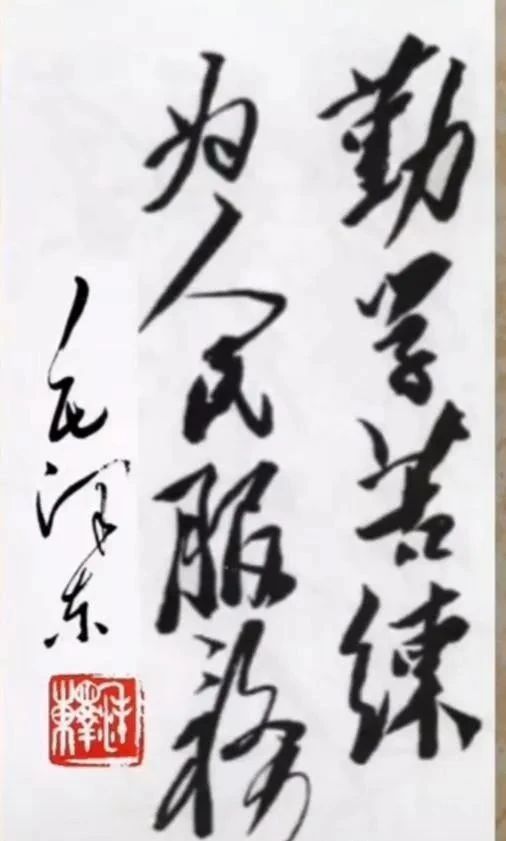 勤学苦練
为人民服務
毛泽东